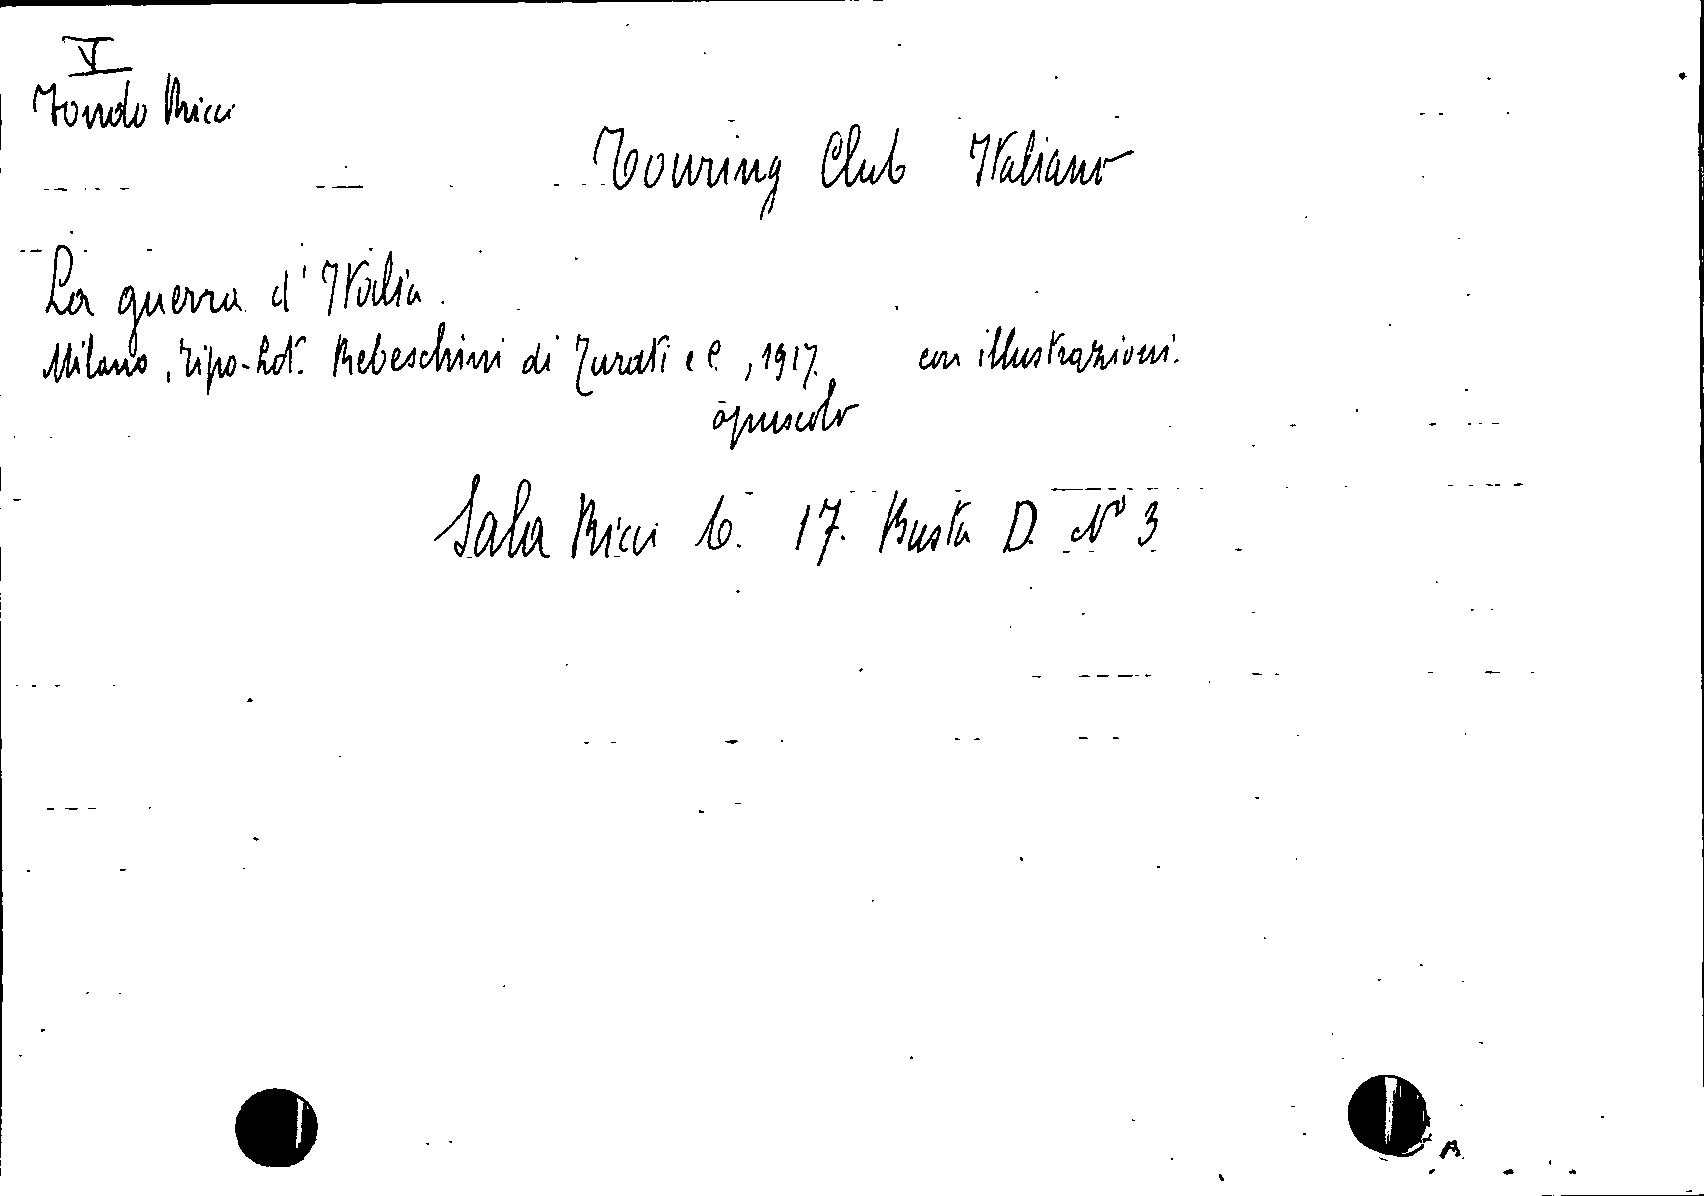 V
Fondo Ricci
Touring Club Italiano
La guerra d'Italia.
Milano, Tipo-Lit. Rebeschini di Turati e C., 1917. con illustrazioni.
opuscolo
Sala Ricci C. 17. Busta D. N° 3